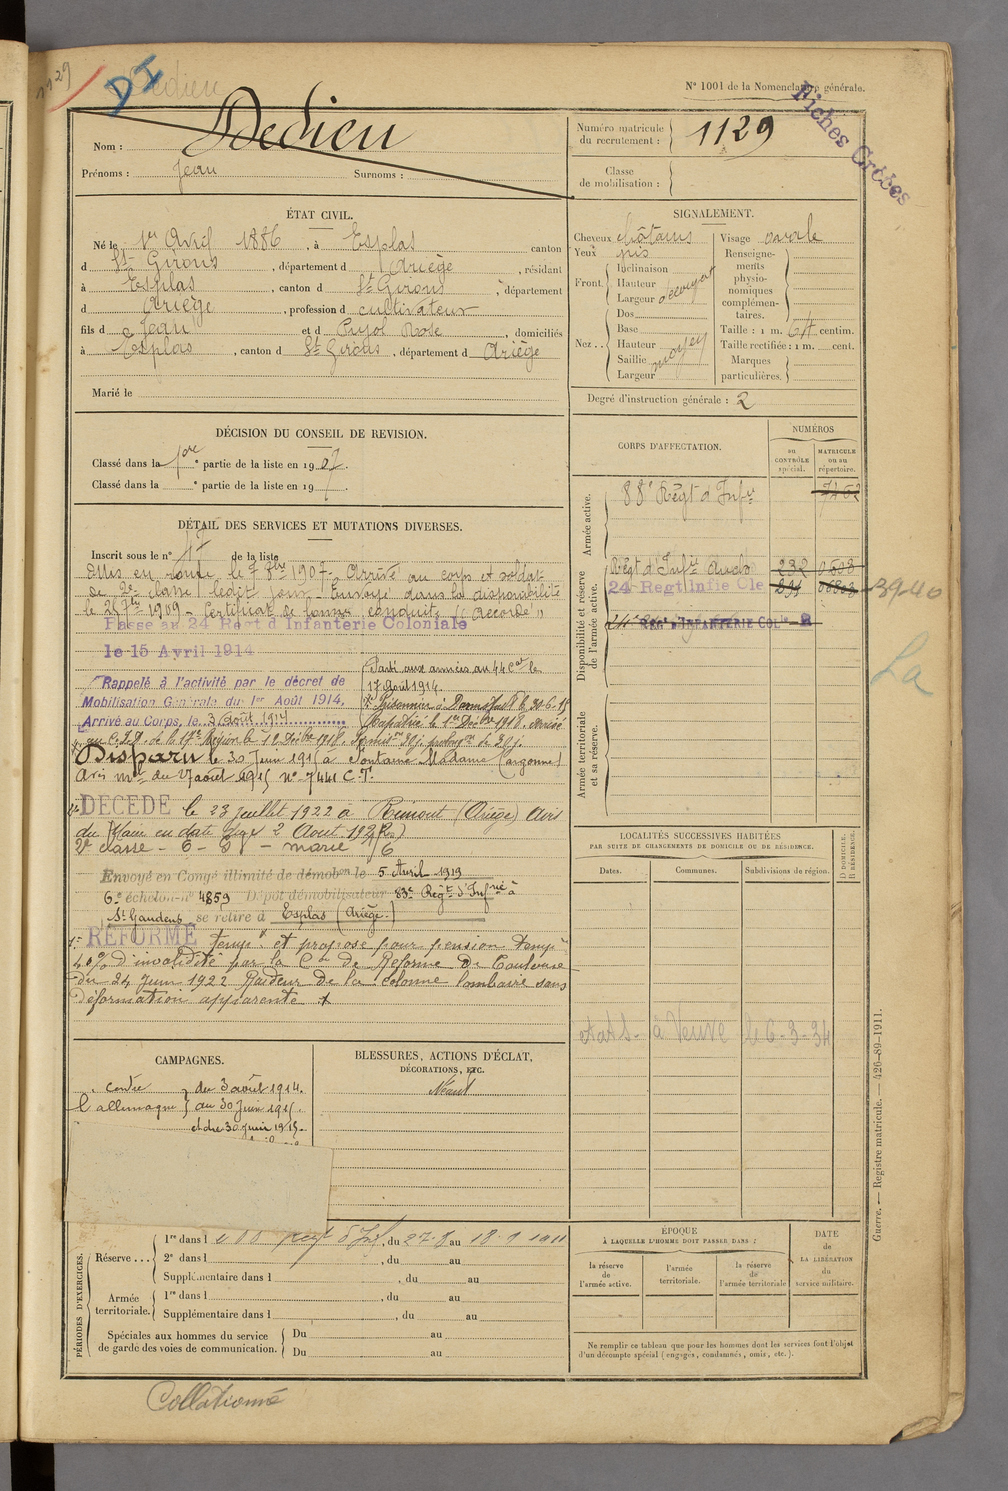 1129
DI
Dedieu
N° 1001 de la Nomenclature générale.
Fiches Créées
Nom : Dedieu
Prénoms : Jean Surnoms :
Numéro matricule du recrutement : 1129
Classe de mobilisation :
ÉTAT CIVIL.
Né le 1er Avril 1886, à Esplas canton
d St Girons, département d Ariège, résidant
à Esplas, canton d St Girons, département
d Ariège, profession d cultivateur
fils d e Jean et d Pujol Rose, domiciliés
à Esplas, canton d St Girons, département d Ariège
Marié le
SIGNALEMENT.
Cheveux châtains
Yeux gris
Front. Inclinaison
Hauteur
Largeur découvert
Nez .. Dos
Base
Hauteur
Saillie
Largeur moyen
Visage ovale
Renseignements physionomiques complémentaires.
Taille : 1 m. 64 centim.
Taille rectifiée : 1 m. cent.
Marques particulières.
Degré d'instruction générale : 2
DÉCISION DU CONSEIL DE REVISION.
Classé dans la 1re partie de la liste en 1907.
Classé dans la ° partie de la liste en 19 .
CORPS D'AFFECTATION.
NUMÉROS
au CONTRÔLE spécial.
MATRICULE ou au répertoire.
Armée active.
88e Régt d'Infie
7462
Disponibilité et réserve de l'armée active.
Régt d'Infie 232
24 Regt Infie Cle 234
24e RÉGt d'INFANTERIE COLle
39-40
La
Armée territoriale et sa réserve.
DÉTAIL DES SERVICES ET MUTATIONS DIVERSES.
Inscrit sous le n° 17 de la liste
Mis en route le 7 8bre 1907. Arrivé au corps et soldat
de 2e classe ledit jour. Envoyé dans la disponibilité
le 25 7bre 1909 - Certificat de bonne conduite "Accordé"
Passé au 24 Regt d Infanterie Coloniale
le 15 Avril 1914
Rappelé à l'activité par le décret de
Mobilisation Générale du 1er Août 1914,
Arrivé au Corps, le 3 août 1914
Parti aux armées au 44 Cal le
17 août 1914.
Prisonnier à Darmstadt le 30-6-15
Rapatrié le 1er Décbre 1918. Arrivé
au C.I.R. de la 17e Région le 12 Décbre 1918. Permisson 30 j. prolongée de 30 j.
Disparu le 30 Juin 1915 à Fontaine Madame (Argonne)
Avis mel du 17 août 1915 n° 7441 C.T.
DÉCÉDÉ le 23 juillet 1922 à Rimont (Ariège) avis
du Maire en date du 2 Août 1922
2e classe
Envoyé en Congé illimité de démobon le 5 Avril 1919
6e échelon n° 4859 Dépôt démobilisateur 83e Régt d'Infrie à
St Gaudens se retire à Esplas (Ariège.)
RÉFORMÉ tempre et proposé pour pension tempre
40% d'invalidité par la Con de Réforme de Toulouse
du 24 Juin 1922 Raideur de la colonne lombaire sans
déformation apparente
LOCALITÉS SUCCESSIVES HABITÉES
PAR SUITE DE CHANGEMENTS DE DOMICILE OU DE RÉSIDENCE.
Dates. Communes. Subdivisions de région.
D DOMICILE. R RÉSIDENCE.
à Veuve le 6-3-34
CAMPAGNES.
contre l'allemagne
du 3 août 1914.
au 30 Juin 1915.
et du 30 juin 1915.
BLESSURES, ACTIONS D'ÉCLAT,
DÉCORATIONS, ETC.
Néant
PÉRIODES D'EXERCICES.
Réserve ...
1re dans l , du 27-8 au 18-9 1911
2e dans l , du au
Supplémentaire dans l , du au
Armée territoriale.
1re dans l , du au
Supplémentaire dans l , du au
Spéciales aux hommes du service de garde des voies de communication.
Du au
Du au
ÉPOQUE
À LAQUELLE L'HOMME DOIT PASSER DANS :
la réserve de l'armée active.
l'armée territoriale.
la réserve de l'armée territoriale
DATE de LA LIBÉRATION du service militaire.
Ne remplir ce tableau que pour les hommes dont les services font l'objet
d'un décompte spécial (engagés, condamnés, omis, etc.).
Guerre. — Registre matricule. — 426-89-1911.
Collationné